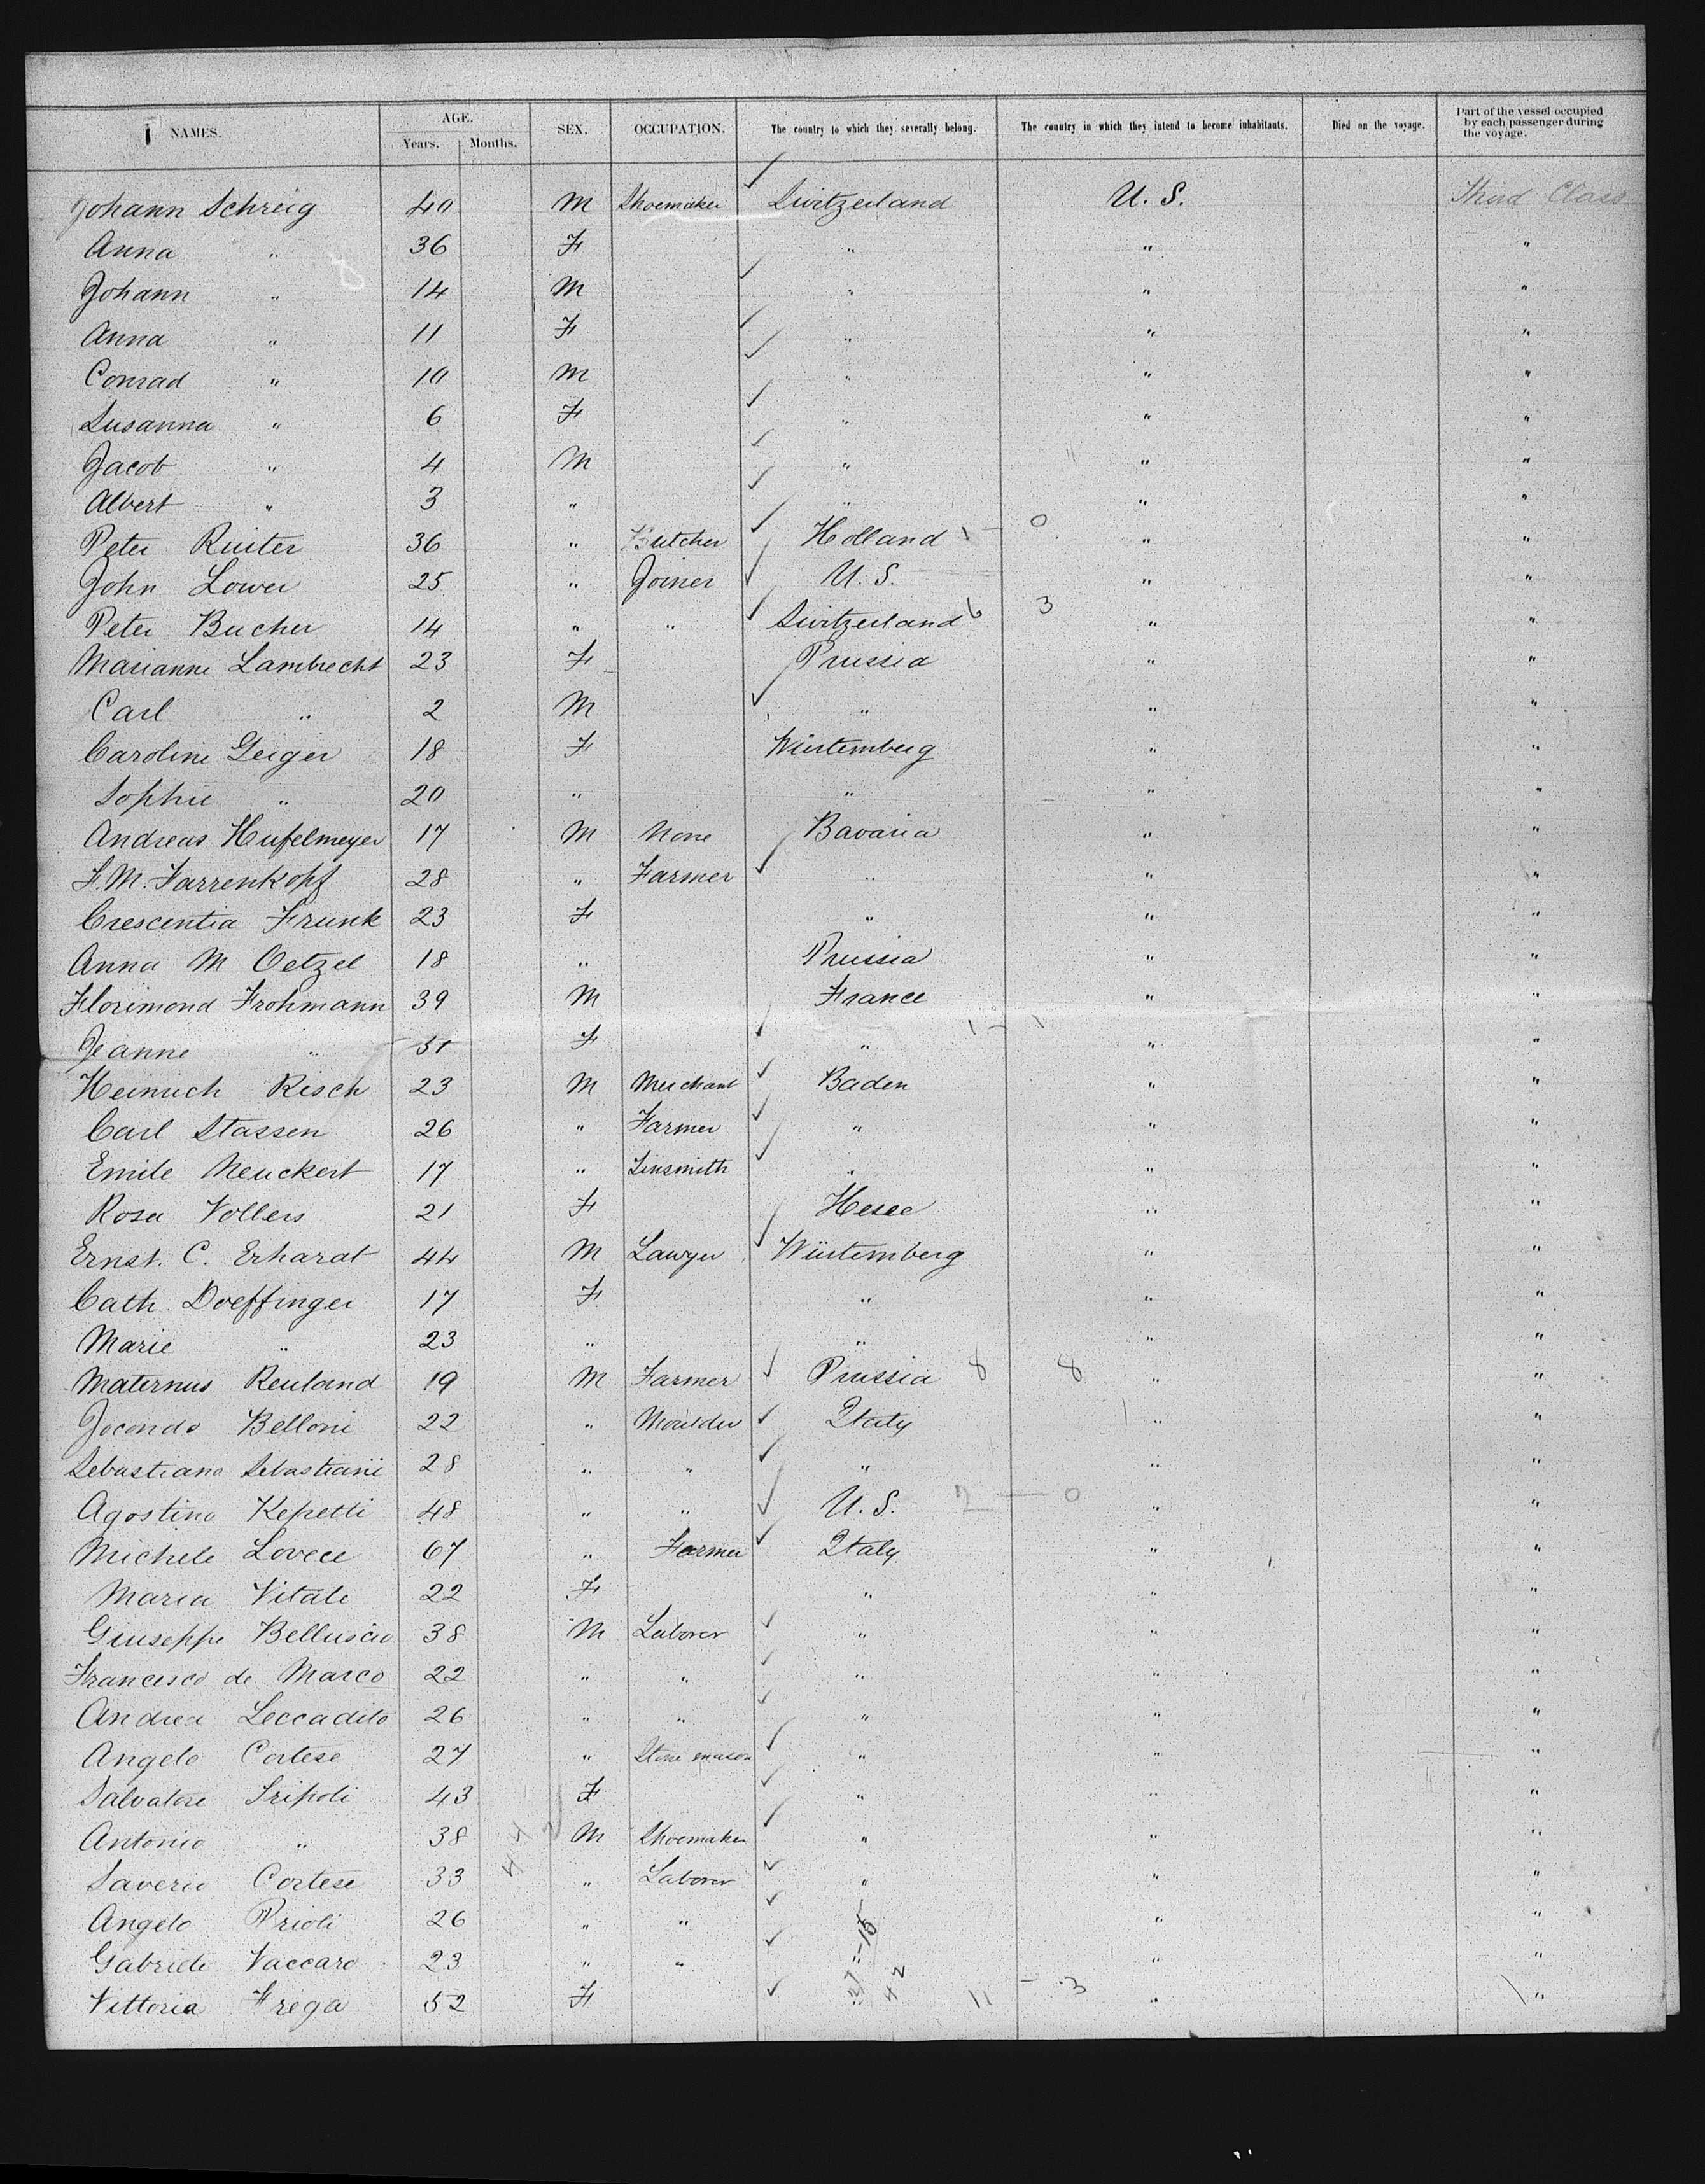 NAMES. AGE. Years. Months. SEX. OCCUPATION. The country to which they severally belong. The country in which they intend to become inhabitants. Died on the voyage. Part of the vessel occupied by each passenger during the voyage.
Johann Schreig 40 M Shoemaker Switzerland U. S. Third Class
Anna " 36 F " " "
Johann " 14 M " " "
Anna " 11 F " " "
Conrad " 10 M " " "
Susanna " 6 F " " "
Jacob " 4 M " " "
Albert " 3 " " " "
Peter Ruiter 36 " Butcher Holland 1 - 0 " "
John Lower 25 " Joiner U. S. " "
Peter Bucher 14 " " Switzerland 6 3 " "
Marianne Lambrecht 23 F Prussia " "
Carl " 2 M " " "
Caroline Geiger 18 F Würtemberg " "
Sophie " 20 " " " "
Andreas Hufelmeyer 17 M None Bavaria " "
F. M. Farrenkopf 28 " Farmer " " "
Crescentia Frunk 23 F " " "
Anna M Oetzel 18 " Prussia " "
Florimond Frohmann 39 M France " "
1 - 1
Jeanne " 51 F " " "
Heinrich Risch 23 M Merchant Baden " "
Carl Stassen 26 " Farmer " " "
Emile Neuckert 17 " Tinsmith " " "
Rosa Vollers 21 F Hesse " "
Ernst. C. Erhardt 44 M Lawyer Würtemberg " "
Cath. Doeffinger 17 F " " "
Marie " 23 " " " "
Maternus Reuland 19 M Farmer Prussia 8 8 " "
Jocondo Belloni 22 " Moulder Italy " "
Sebastiano Sebastiani 28 " " " " "
Agostino Repetti 48 " " U. S. 2 - 0 " "
Michele Lovece 67 " Farmer Italy " "
Maria Vitale 22 F " " "
Giuseppe Belluscio 38 M Laborer " " "
Francesco de Marco 22 " " " " "
Andrea Leccadito 26 " " " " "
Angelo Cortese 27 " Stone mason " " "
Salvatore Tripoli 43 F " " "
Antonio " 38 M Shoemaker " " "
Saverio Cortese 33 " Laborer " " "
Angelo Prioli 26 " " " "
Gabriele Vaccaro 23 " " " 15 " "
Vittoria Frega 52 F " 27 42 11 - 3 " "